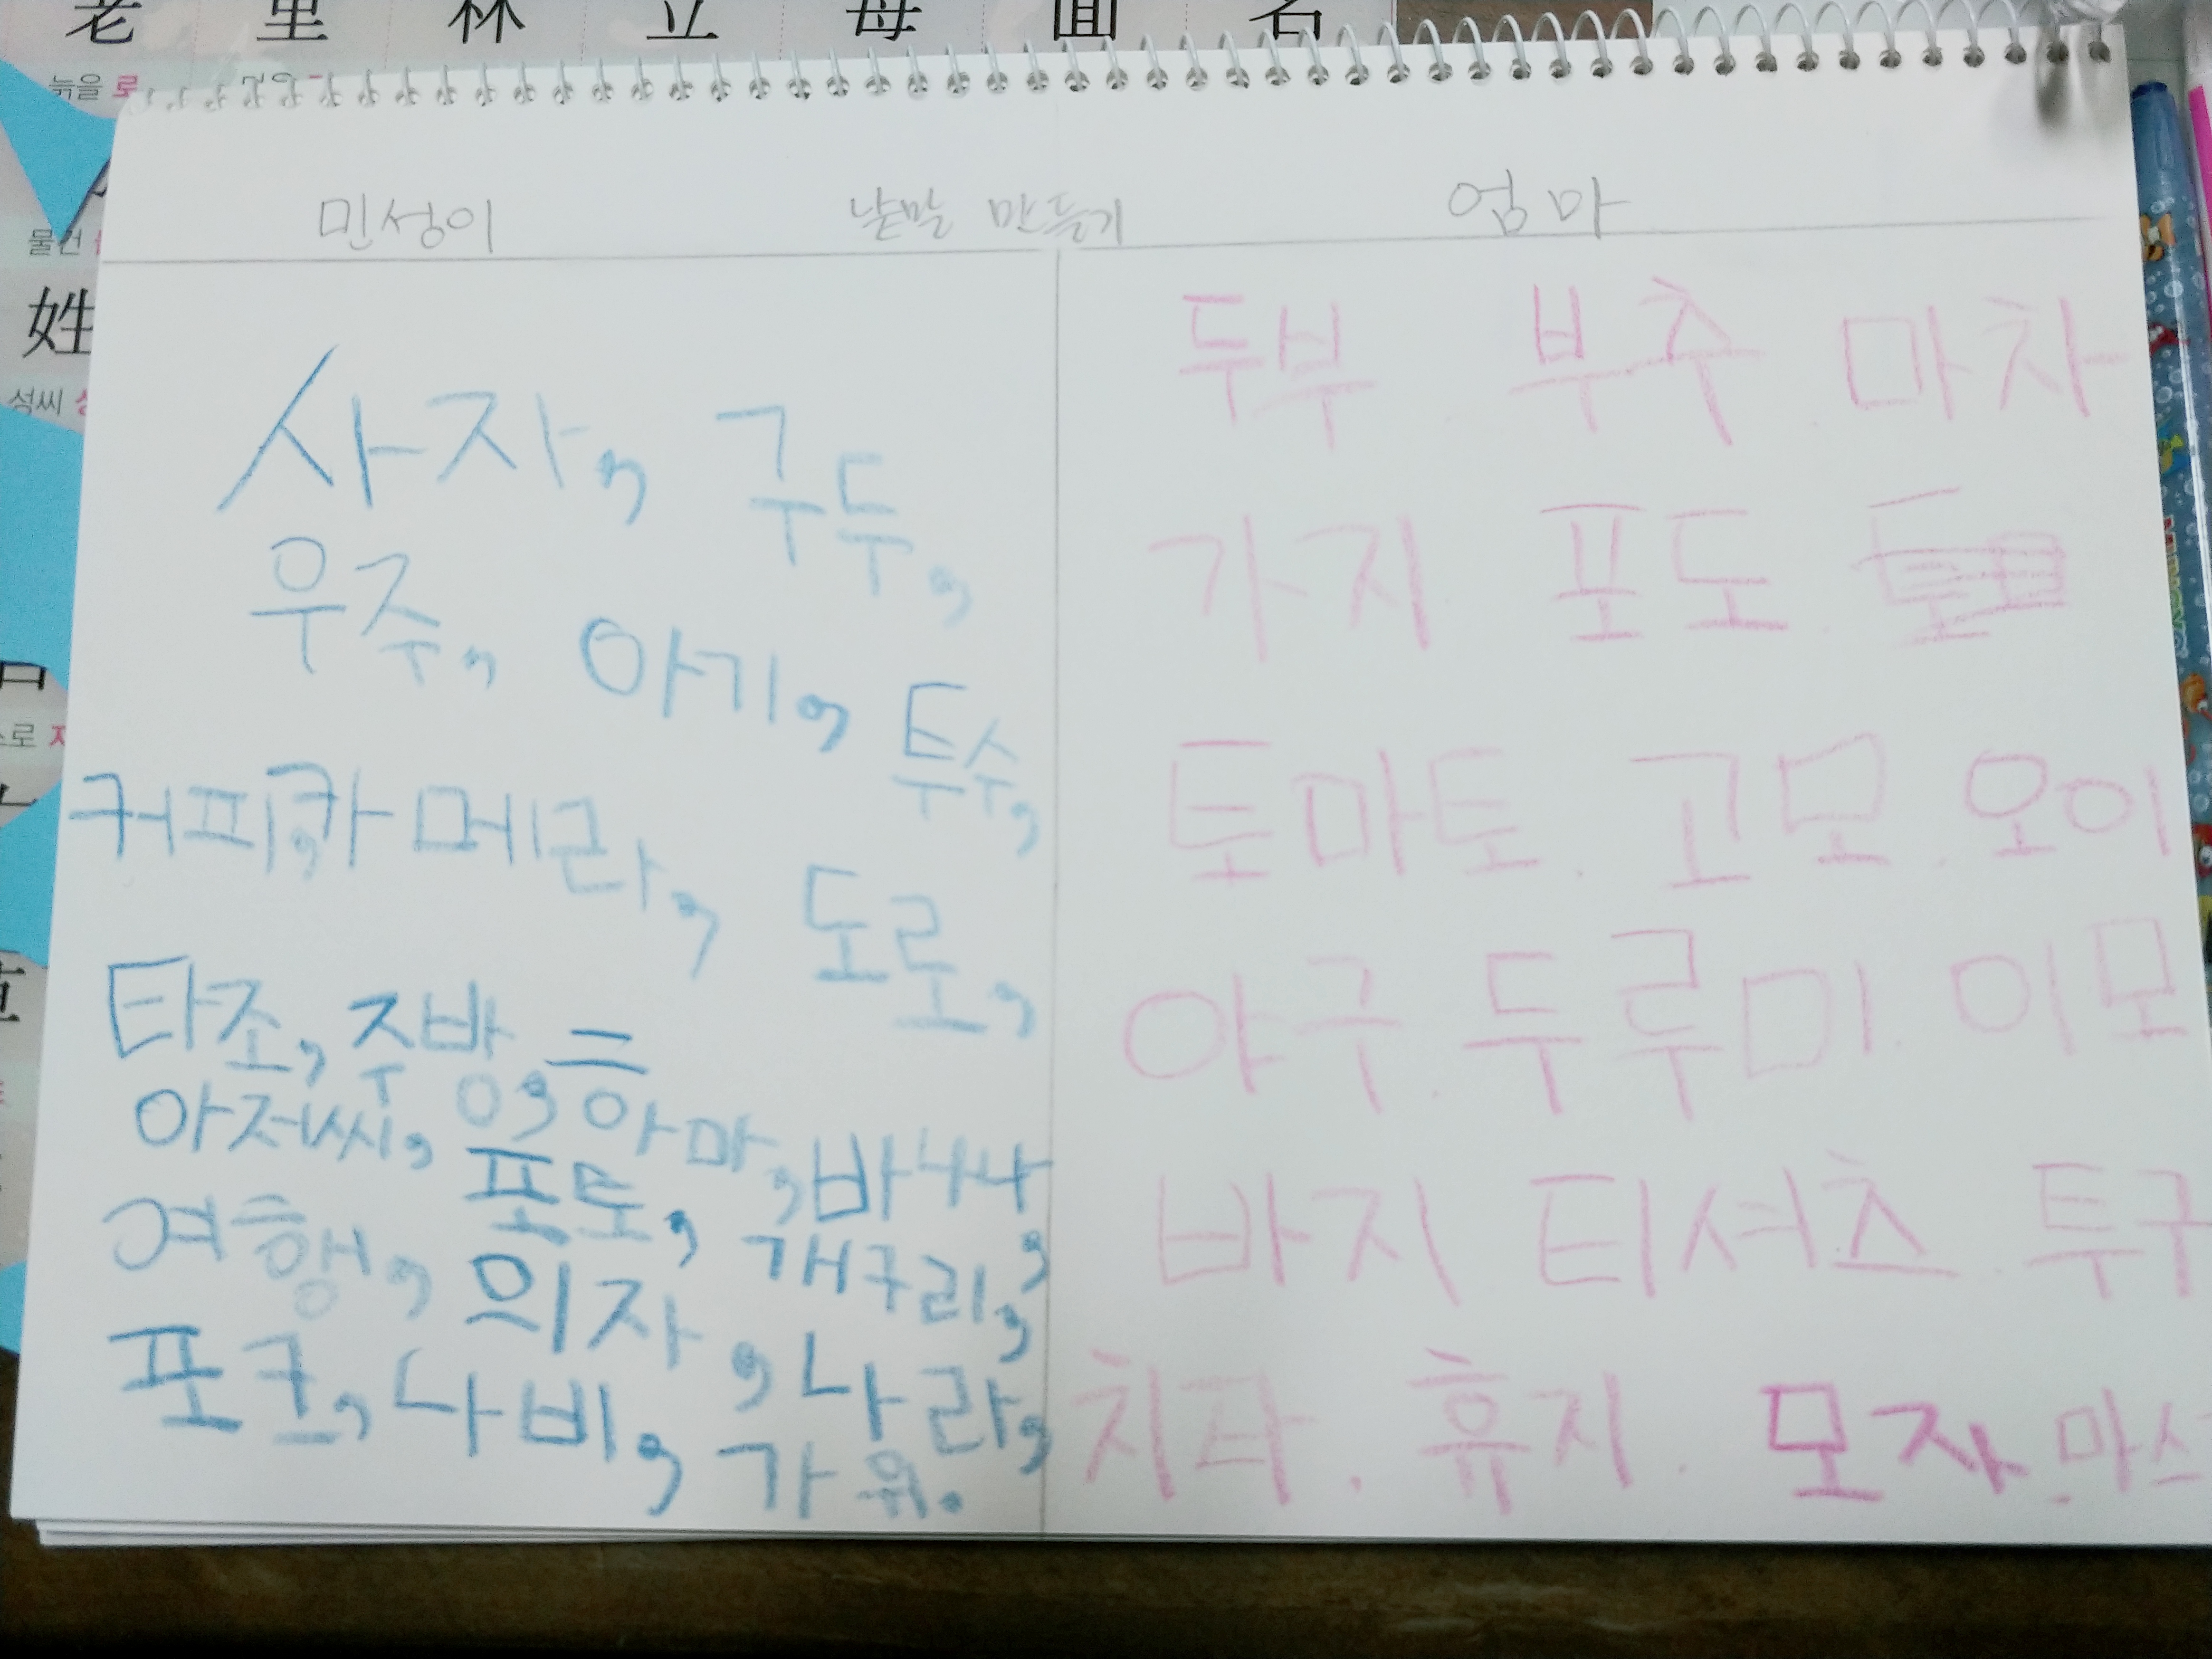 老 里 林 立 母 面 名
늙을 로
물건
姓
성씨
민성이 낱말 만들기 엄마
사자, 구두,
우주, 아기, 투수,
커피, 카메라, 도로,
타조, 주방,
아저씨, 하마, 바나나,
여행, 포토, 개구리,
의자, 나라,
포크, 나비, 가위.
두부 부추 마차
가지 포도
토마토. 고모. 오이
야구. 두루미. 이모
바지 티셔츠. 투구
치타. 휴지. 모자. 마스